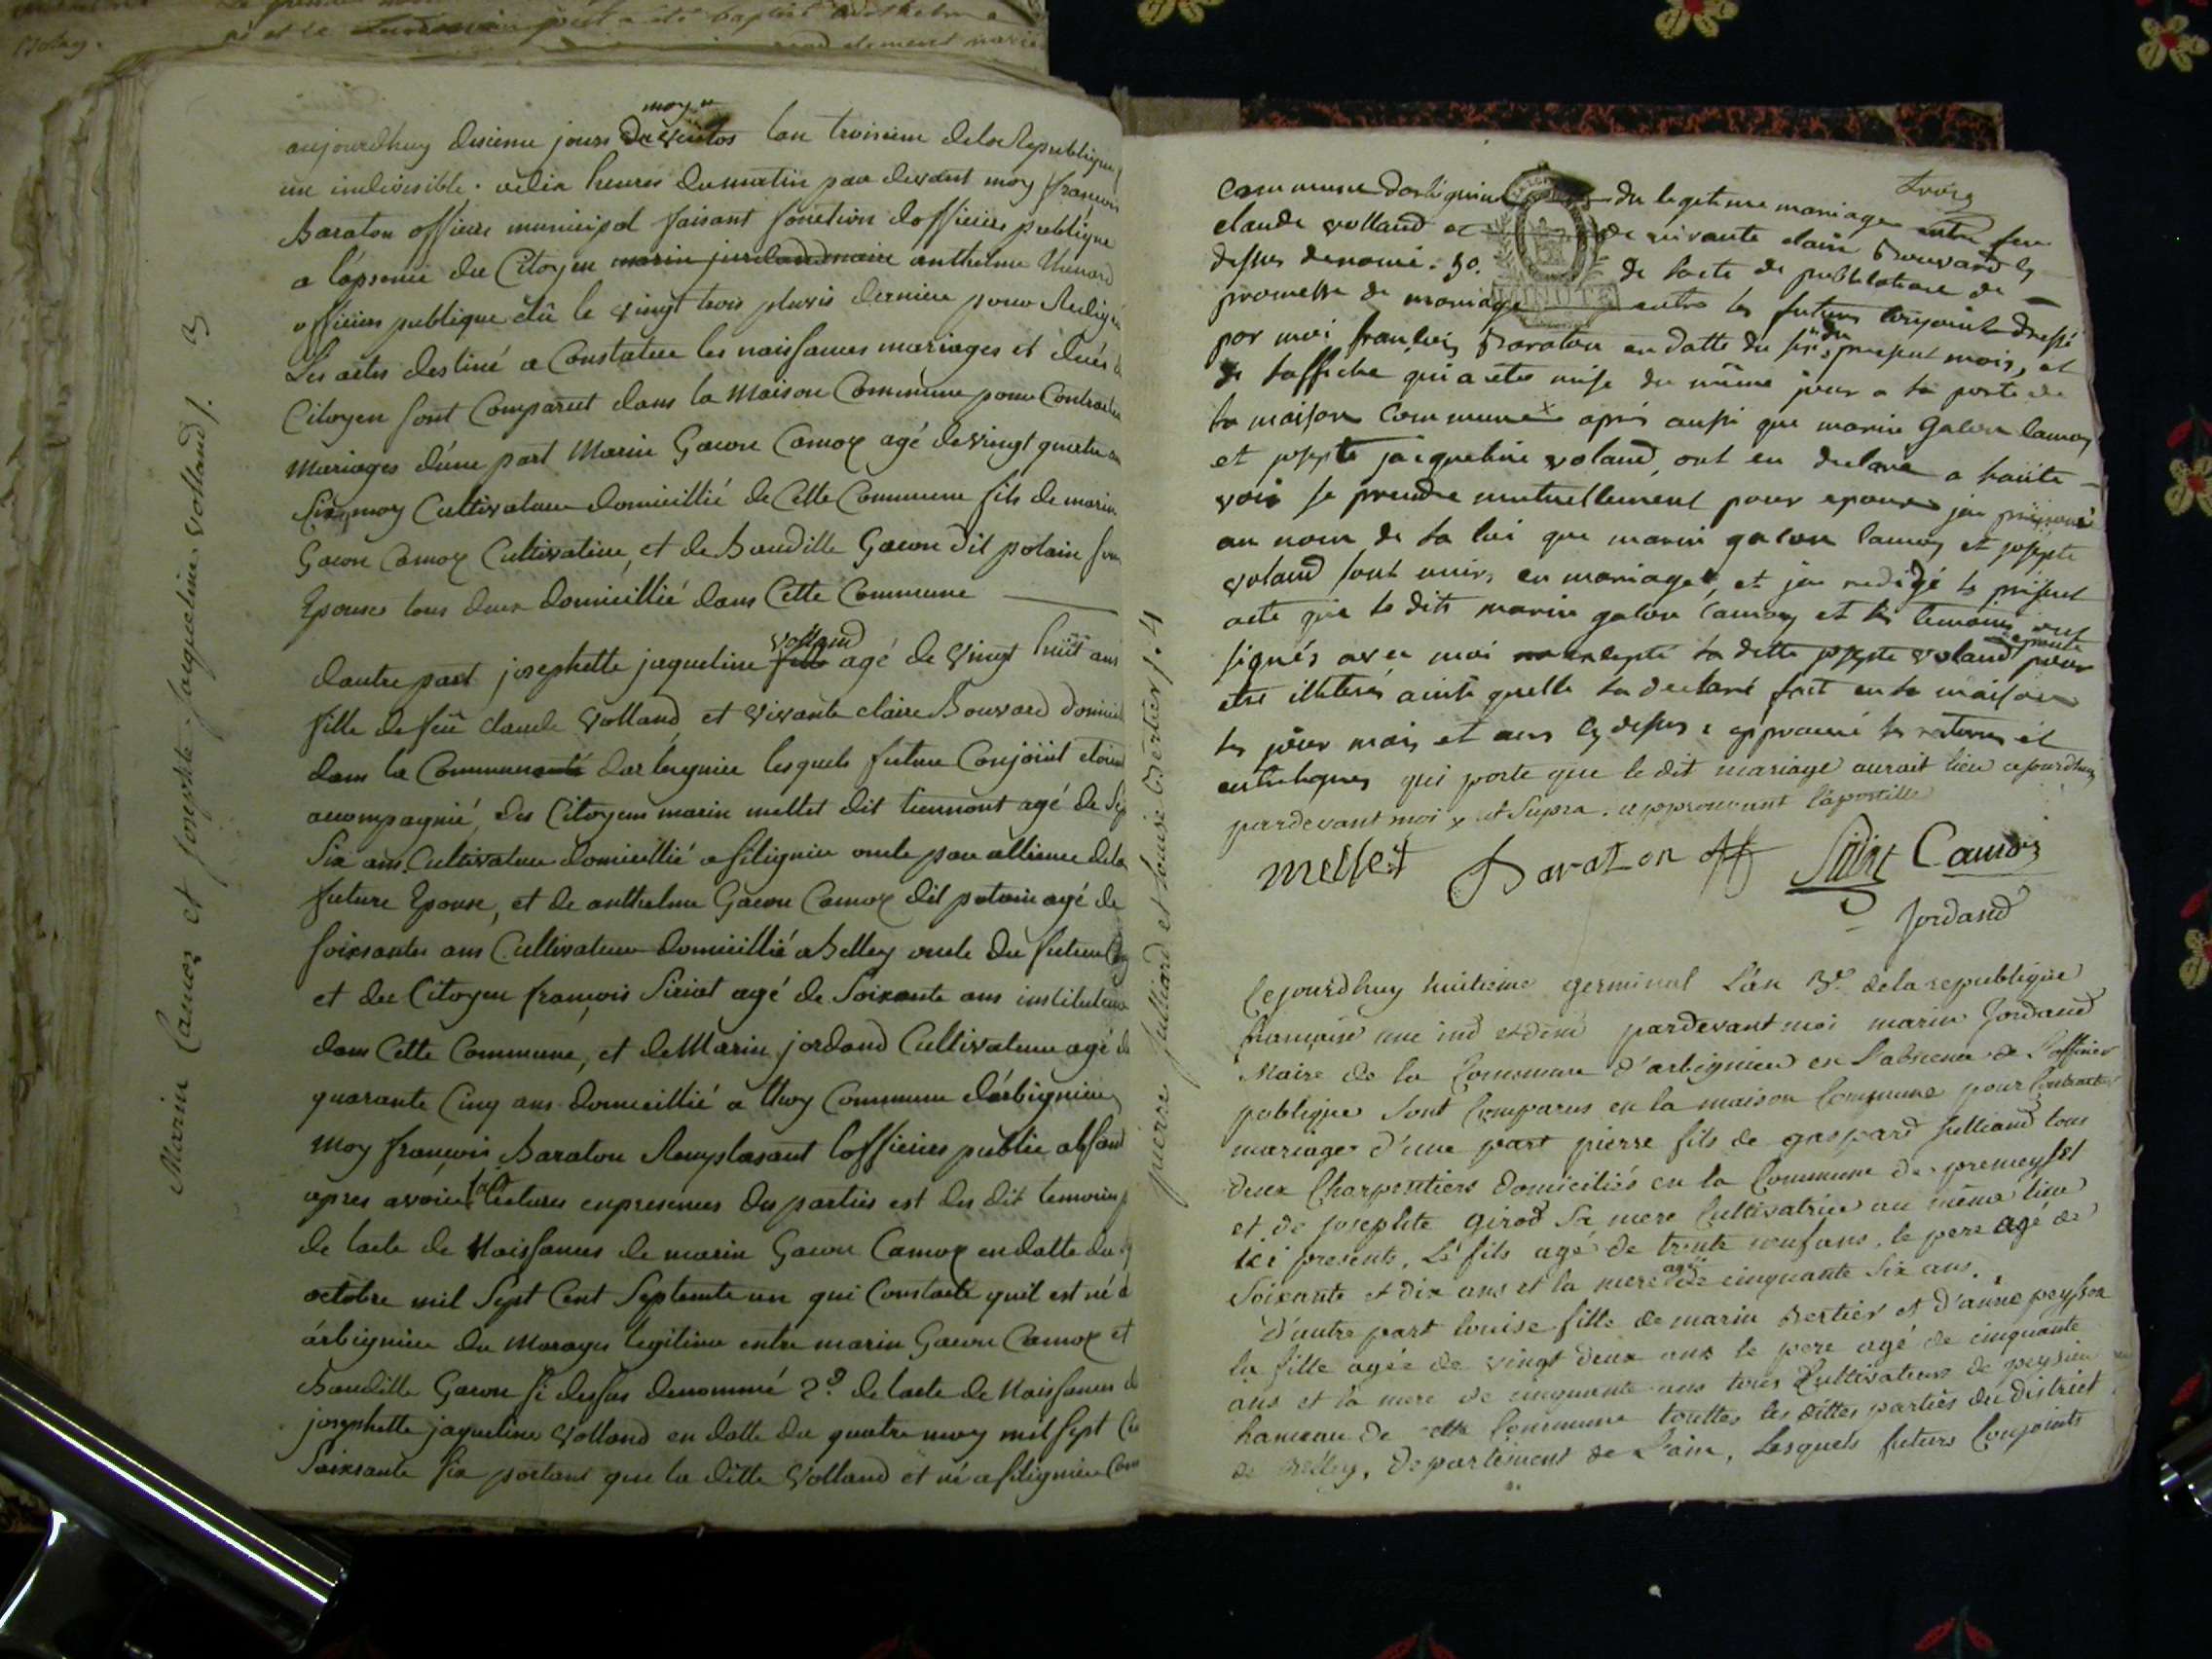 aujourdhuy disieme jours du Ventos lan troisieme dela Republique
moy
une indivisible. adix heures dumatin par devant moy françois
Baraton officier municipal faisant fonction dofficier publique
a lapsence du Citoyen marin jordand maire anthelme
officier publique élû le vingt trois pluvis dernier pour Redigé
Les actes destiné a Constater les naissances mariages et
Citoyen sont Comparut dans la Maison Commune pour Contracter
Mariages d'une part Marin Gacon Camoz agé de vingt quatre ans
Six moy Cultivateur domicillié de Cette Commune fils de marin
Gacon Camoz Cultivateur, et de Baudille Gacon dit potain son
Epouse tous deux domicillié dans Cette Commune
dautre part josephette jaqueline fille agé de vingt huit ans
volland
fille de feu claude Volland, et vivante claire Bouvard
dans la Communauté darbegnieu lesquels future Conjoint
acompagnié, des Citoyens marin mellet dit agé de
Six ans Cultivateur domicillié a Silignieu oncle par alliance dela
future Epouse, et de anthelme Gacon Camoz dit potain agé de
soixantes ans Cultivateur domicillié a Belley oncle du futur
et du Citoyen françois Siriat agé de Soixante ans instituteur
dans Cette Commune, et de Marin jordand Cultivateur agé de
quarante Cinq ans domicillié a thoy Commune d'arbignieu
moy françois Baraton Remplasant lofficier public absent
apres avoir fait lectures enpresences des parties est des dit temoins
de lacte de Naissances de marin Gacon Camoz en datte du
octobre mil Sept Cent Septente un qui Constate quil est né à
arbignieu du Marages legitime entre marin Gacon Camoz et
Baudille Gacon si dessus denommé 2º. de lacte de Naissances de
josephette jaqueline Volland en datte du quatre may mil Sept
Soixsante six portant que la ditte Volland et né a Silignieu
Marin Camoz et josephte Jacqueline volland /. 3
trois
commune darbignieu du legitime mariage entre feu
claude volland et de vivante claire Bouvard cy
dessus denomé. 3o. de lacte de publication de
promesse de mariage entre les futurs conjoints dressé
par moi françois Baraton en datte du six du present mois, et
de laffiche qui a ete mise du même jour a la porte de
la maison commune x après aussi que marin Gacon camoz
et josephte jacqueline voland, ont eu declaré a haute
voix se prendre mutuellement pour epoux jai prononcé
au nom de la loi que marin gacon camoz et josephte
voland sont unis en mariage, et jai redigé le present
acte que le dits marin gacon camoz et les temoins ont
signés avec moi excepté la ditte josephte voland epouse pour
etre illiterés ainsi quelle la declaré fait en la maison
les jour mois et ans cy dessus: approuvé les ratures et
entrelignes qui porte que le dit mariage aurait lieu cejourdhuy
pardevant moi x ut supra. approuvant l'apostille
mellet Baraton off Siriat Camoz
Jordand
pierre Julliand et Louise Bertier /. 4
Cejourdhuy huitieme germinal l'an 3e. dela republique
française une ind et dem pardevant moi marin Jordand
Maire de la Commune d'arbignieu en l'absence de l'officier
publique sont Comparus en la maison Commune pour Contracter
mariage d'une part pierre fils de gaspard Julliand tous
deux Charpentiers domiciliés en la Commune de premeysel
et de josephte girod sa mere Cultivatrice au même lieu
ici presents, le fils agé de trente neuf ans, le pere agé de
Soixante et dix ans et la mere agée de cinquante six ans.
D'autre part louise fille de marin Bertier et d'anne peysson
la fille agée de vingt deux ans le pere agé de cinquante
ans et la mere de cinquante ans tous Cultivateurs de peysieu
hameau de cette Commune touttes les dittes parties du district
de Belley, departement de L'ain, Lesquels futurs Conjoints